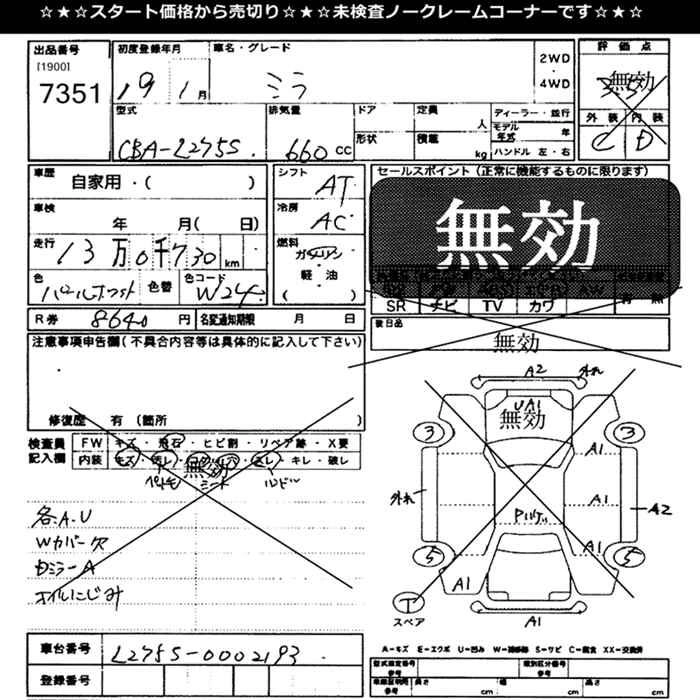 ☆★☆★スタート価格から売切り☆★☆★未検査ノークレームコーナーです☆★☆
出品番号 初度登録年月 車名・グレード 評価点
[1900]
7351
19 1月 ミラ
2WD
・
4WD
無効
外装 内装
C D
型式 排気量 ドア 定員 人 ディーラー・並行
モデル年式 年
CBA-L275S. 660cc 形状 積載 kg ハンドル 左・右
車歴 自家用・( ) シフト AT
セールスポイント(正常に機能するものに限ります)
無効
車検 年 月( 日) 冷房 AC
走行 13万0千730km 燃料 ガソリン
軽・油
( )
色 パールホワイト 色替 色コード W24
SR ナビ TV カワ
R券 8640円 名変通知期限 月 日
後日品
無効
注意事項申告欄(不具合内容等は具体的に記入して下さい)
修復歴 有(箇所 )
検査員記入欄 FW キズ・飛石・ヒビ割・リペア跡・X要
内装 キズ・汚レ・コゲ・穴・スレ・キレ・破レ
無効
シート
各A.U
Wカバー欠
オイルにじみ
A2 外れ
UA1
無効
3 3
A1
外れ A1 A2
A1
5 5
A1
T
スペア
A1
A-キズ E-エクボ U-凹み W-補修跡 S-サビ C-腐食 XX-交換済
車台番号 L275S-0002193
登録番号
型式指定番号 参考 類別区分番号 参考
車庫証明用 参考 長さ cm 幅 cm 高さ cm